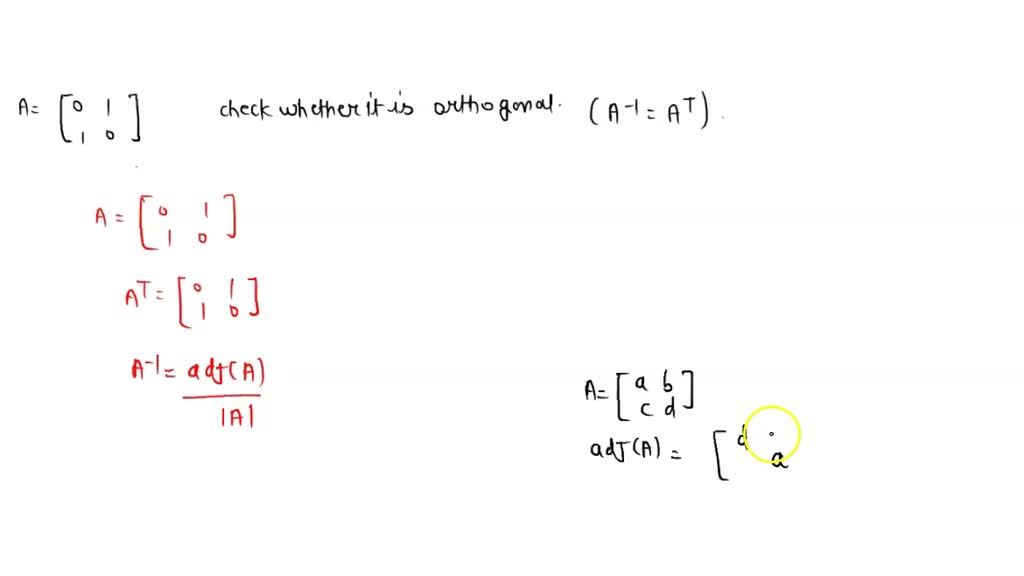 A= [0 1
1 0] check whether it is orthogonal. (A⁻¹ = Aᵀ).
A = [0 1
1 0]
Aᵀ = [0 1
1 0]
A⁻¹ = adj(A)
|A|
A= [a b
c d]
adj(A) = [d
a